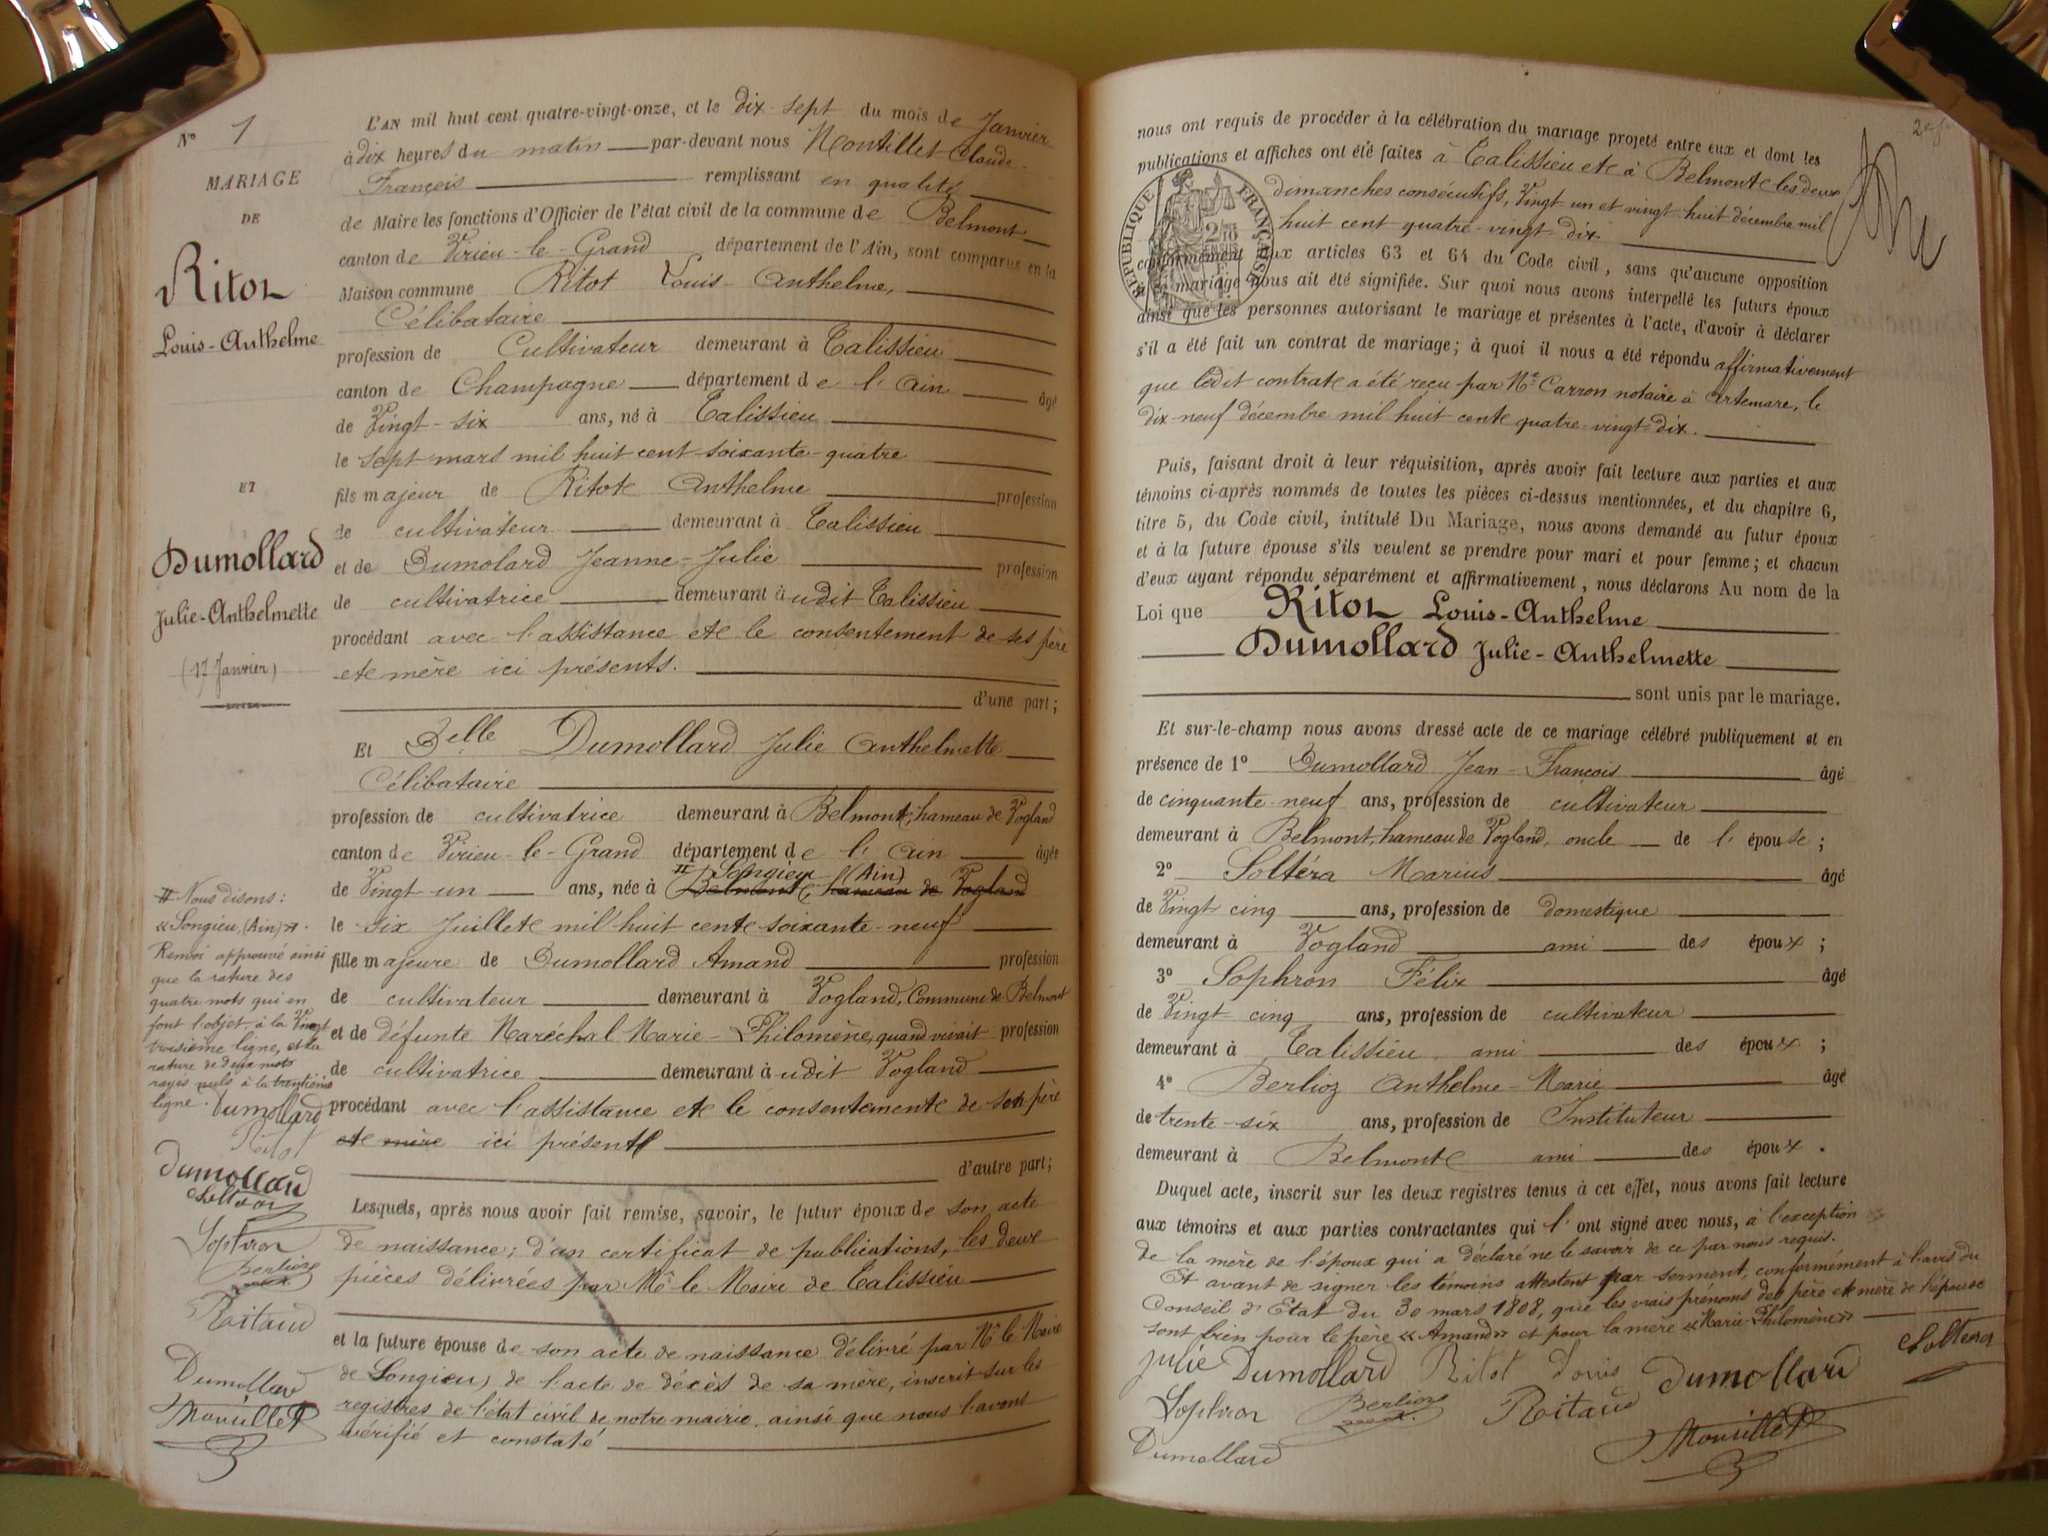 N° 1
MARIAGE
DE
Ritot
Louis-Anthelme
ET
Dumollard
Julie-Anthelmette
(17 Janvier)
# Nous disons:
« Songieu, (Ain) ».
Renvoi approuvé ainsi
que la rature des
quatre mots qui en
font l'objet, à la Vingt
troisième ligne, et la
rature de deux mots
rayés nuls à la trentième
ligne. Dumollard
Ritot
Dumollard
Solterà
Sophron
Berlioz
Ritaud
Dumollard
Montillet
L'AN mil huit cent quatre-vingt-onze, et le dix-sept du mois de Janvier
à dix heures du matin par-devant nous Montillet Claude-
François remplissant en qualité
de Maire les fonctions d'Officier de l'état civil de la commune de Belmont
canton de Virieu-le-Grand département de l'Ain, sont comparus en la
Maison commune Ritot Louis-Anthelme,
Célibataire
profession de Cultivateur demeurant à Talissieu
canton de Champagne département de l'Ain âgé
de Vingt-six ans, né à Talissieu
le sept mars mil huit cent soixante-quatre
fils majeur de Ritot Anthelme profession
de cultivateur demeurant à Talissieu
et de Dumolard Jeanne-Julie profession
de cultivatrice demeurant à udit Talissieu
procédant avec l'assistance et le consentement de ses père
et mère ici présents.
d'une part;
Et Delle Dumollard Julie Anthelmette
Célibataire
profession de cultivatrice demeurant à Belmont, hameau de Vogland
canton de Virieu-le-Grand département de l'Ain âgée
# Songieu (Ain)
de Vingt un ans, née à Belmont, hameau de Vogland
le six Juillet mil huit cent soixante-neuf
fille majeure de Dumollard Amand profession
de cultivateur demeurant à Vogland, Commune de Belmont
et de défunte Maréchal Marie-Philomène, quand vivait profession
de cultivatrice demeurant à udit Vogland
procédant avec l'assistance et le consentement de son père
et mère ici présent
d'autre part;
Lesquels, après nous avoir fait remise, savoir, le futur époux de son acte
de naissance; d'un certificat de publications, les deux
pièces délivrées par Mr le Maire de Talissieu
et la future épouse de son acte de naissance délivré par Mr le Maire
de Songieu, de l'acte de décès de sa mère, inscrit sur les
registres de l'état civil de notre mairie, ainsi que nous l'avons
vérifié et constaté
nous ont requis de procéder à la célébration du mariage projeté entre eux et dont les
publications et affiches ont été faites à Talissieu et à Belmont les deux
dimanches consécutifs, Vingt un et vingt-huit décembre mil
huit cent quatre-vingt-dix
RÉPUBLIQUE FRANÇAISE
conformément aux articles 63 et 64 du Code civil, sans qu'aucune opposition
à ce mariage nous ait été signifiée. Sur quoi nous avons interpellé les futurs époux
ainsi que les personnes autorisant le mariage et présentes à l'acte, d'avoir à déclarer
s'il a été fait un contrat de mariage; à quoi il nous a été répondu affirmativement
que ledit contrat a été reçu par Me Carron notaire à Artemare, le
dix-neuf décembre mil huit cent quatre-vingt-dix.
Puis, faisant droit à leur réquisition, après avoir fait lecture aux parties et aux
témoins ci-après nommés de toutes les pièces ci-dessus mentionnées, et du chapitre 6,
titre 5, du Code civil, intitulé Du Mariage, nous avons demandé au futur époux
et à la future épouse s'ils veulent se prendre pour mari et pour femme; et chacun
d'eux ayant répondu séparément et affirmativement, nous déclarons Au nom de la
Loi que Ritot Louis-Anthelme
Dumollard Julie-Anthelmette
sont unis par le mariage.
Et sur-le-champ nous avons dressé acte de ce mariage célébré publiquement et en
présence de 1° Dumollard Jean-François âgé
de cinquante-neuf ans, profession de cultivateur
demeurant à Belmont, hameau de Vogland, oncle de l'épouse;
2° Soltéra Marius âgé
de Vingt cinq ans, profession de domestique
demeurant à Vogland ami des époux;
3° Sophron Félix âgé
de Vingt cinq ans, profession de cultivateur
demeurant à Talissieu, ami des époux;
4° Berlioz Anthelme-Marie âgé
de trente-six ans, profession de Instituteur
demeurant à Belmont ami des époux.
Duquel acte, inscrit sur les deux registres tenus à cet effet, nous avons fait lecture
aux témoins et aux parties contractantes qui l'ont signé avec nous, à l'exception
de la mère de l'époux qui a déclaré ne le savoir de ce par nous requis.
Et avant de signer les témoins attestent par serment, conformément à l'avis du
Conseil d'Etat du 30 mars 1808, que les vrais prénoms des père et mère de l'épouse
sont bien pour le père « Amand » et pour la mère « Marie-Philomène »
Julie Dumollard Ritot Louis Dumollard Solterà
Sophron Berlioz Ritaud
Dumollard Montillet